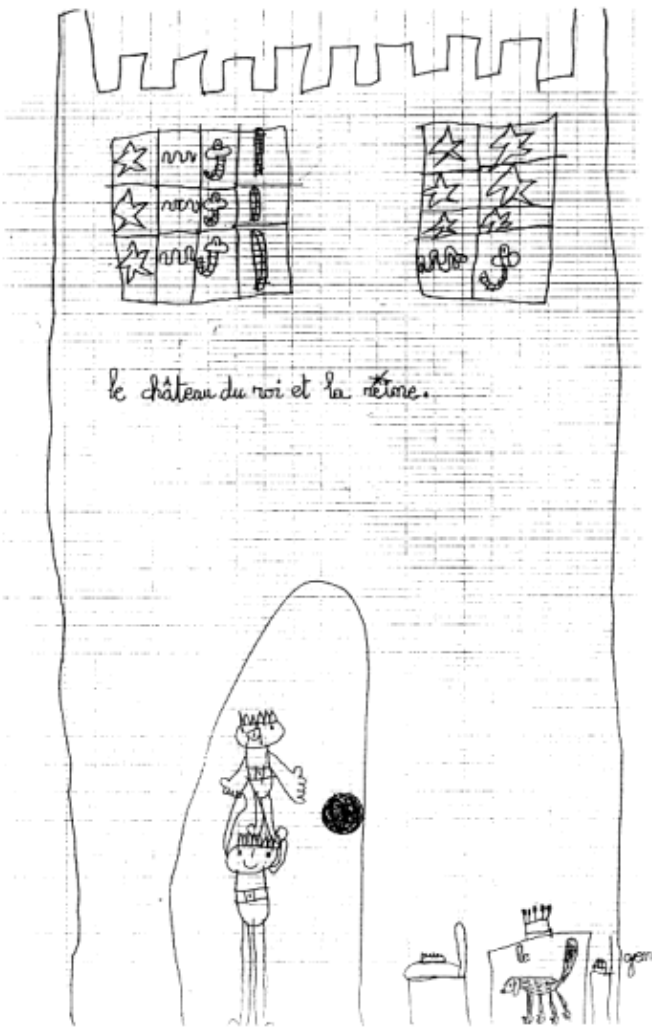 le château du roi et la reine.
le
gen